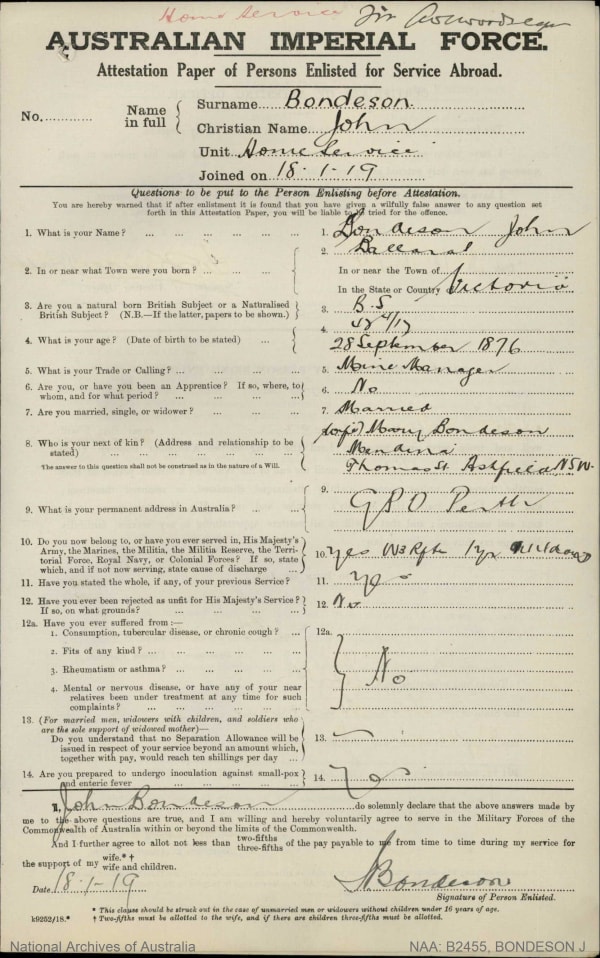 Home Service
AUSTRALIAN IMPERIAL FORCE.
Attestation Paper of Persons Enlisted for Service Abroad.
No.............
Name in full
Surname Bondeson
Christian Name John
Unit Home Service
Joined on 18-1-19
Questions to be put to the Person Enlisting before Attestation.
You are hereby warned that if after enlistment it is found that you have given a wilfully false answer to any question set
forth in this Attestation Paper, you will be liable to be tried for the offence.
1. What is your Name? ... ... ... ... ... 1. Bondeson John
2. In or near what Town were you born? ... ... 2. Ballarat
In or near the Town of
In the State or Country of Victoria
3. Are you a natural born British Subject or a Naturalised
British Subject? (N.B.—If the latter, papers to be shown.) 3. B.S
4. What is your age? (Date of birth to be stated) ... 4. 42 4/12
28 September 1876
5. What is your Trade or Calling? ... ... ... ... 5. Mine Manager
6. Are you, or have you been an Apprentice? If so, where, to
whom, and for what period? ... ... ... ... 6. No
7. Are you married, single, or widower? ... ... ... 7. Married
8. Who is your next of kin? (Address and relationship to be
stated) ... ... ... ... ... 8. (wife) Mary Bondeson
Thomas St Ashfield NSW
The answer to this question shall not be construed as in the nature of a Will.
9. What is your permanent address in Australia? ... ... 9. GPO Perth
10. Do you now belong to, or have you ever served in, His Majesty's
Army, the Marines, the Militia, the Militia Reserve, the Terri-
torial Force, Royal Navy, or Colonial Forces? If so, state
which, and if not now serving, state cause of discharge ... 10. Yes 1 yr
11. Have you stated the whole, if any, of your previous Service? 11. Yes
12. Have you ever been rejected as unfit for His Majesty's Service?
If so, on what grounds? ... ... ... ... 12. No
12a. Have you ever suffered from:— 12a.
1. Consumption, tubercular disease, or chronic cough? ...
2. Fits of any kind? ... ... ... ... ...
3. Rheumatism or asthma? ... ... ... ...
No
4. Mental or nervous disease, or have any of your near
relatives been under treatment at any time for such
complaints? ... ... ... ... ...
13. (For married men, widowers with children, and soldiers who
are the sole support of widowed mother)—
Do you understand that no Separation Allowance will be
issued in respect of your service beyond an amount which,
together with pay, would reach ten shillings per day ... 13.
14. Are you prepared to undergo inoculation against small-pox
and enteric fever ... ... ... ... ... 14.
I, John Bondeson do solemnly declare that the above answers made by
me to the above questions are true, and I am willing and hereby voluntarily agree to serve in the Military Forces of the
Commonwealth of Australia within or beyond the limits of the Commonwealth.
And I further agree to allot not less than two-fifths three-fifths of the pay payable to me from time to time during my service for
the support of my wife.*† wife and children.
Date 18-1-19
J Bondeson
Signature of Person Enlisted.
* This clause should be struck out in the case of unmarried men or widowers without children under 16 years of age.
k9252/18.* † Two-fifths must be allotted to the wife, and if there are children three-fifths must be allotted.
National Archives of Australia NAA: B2455, BONDESON J